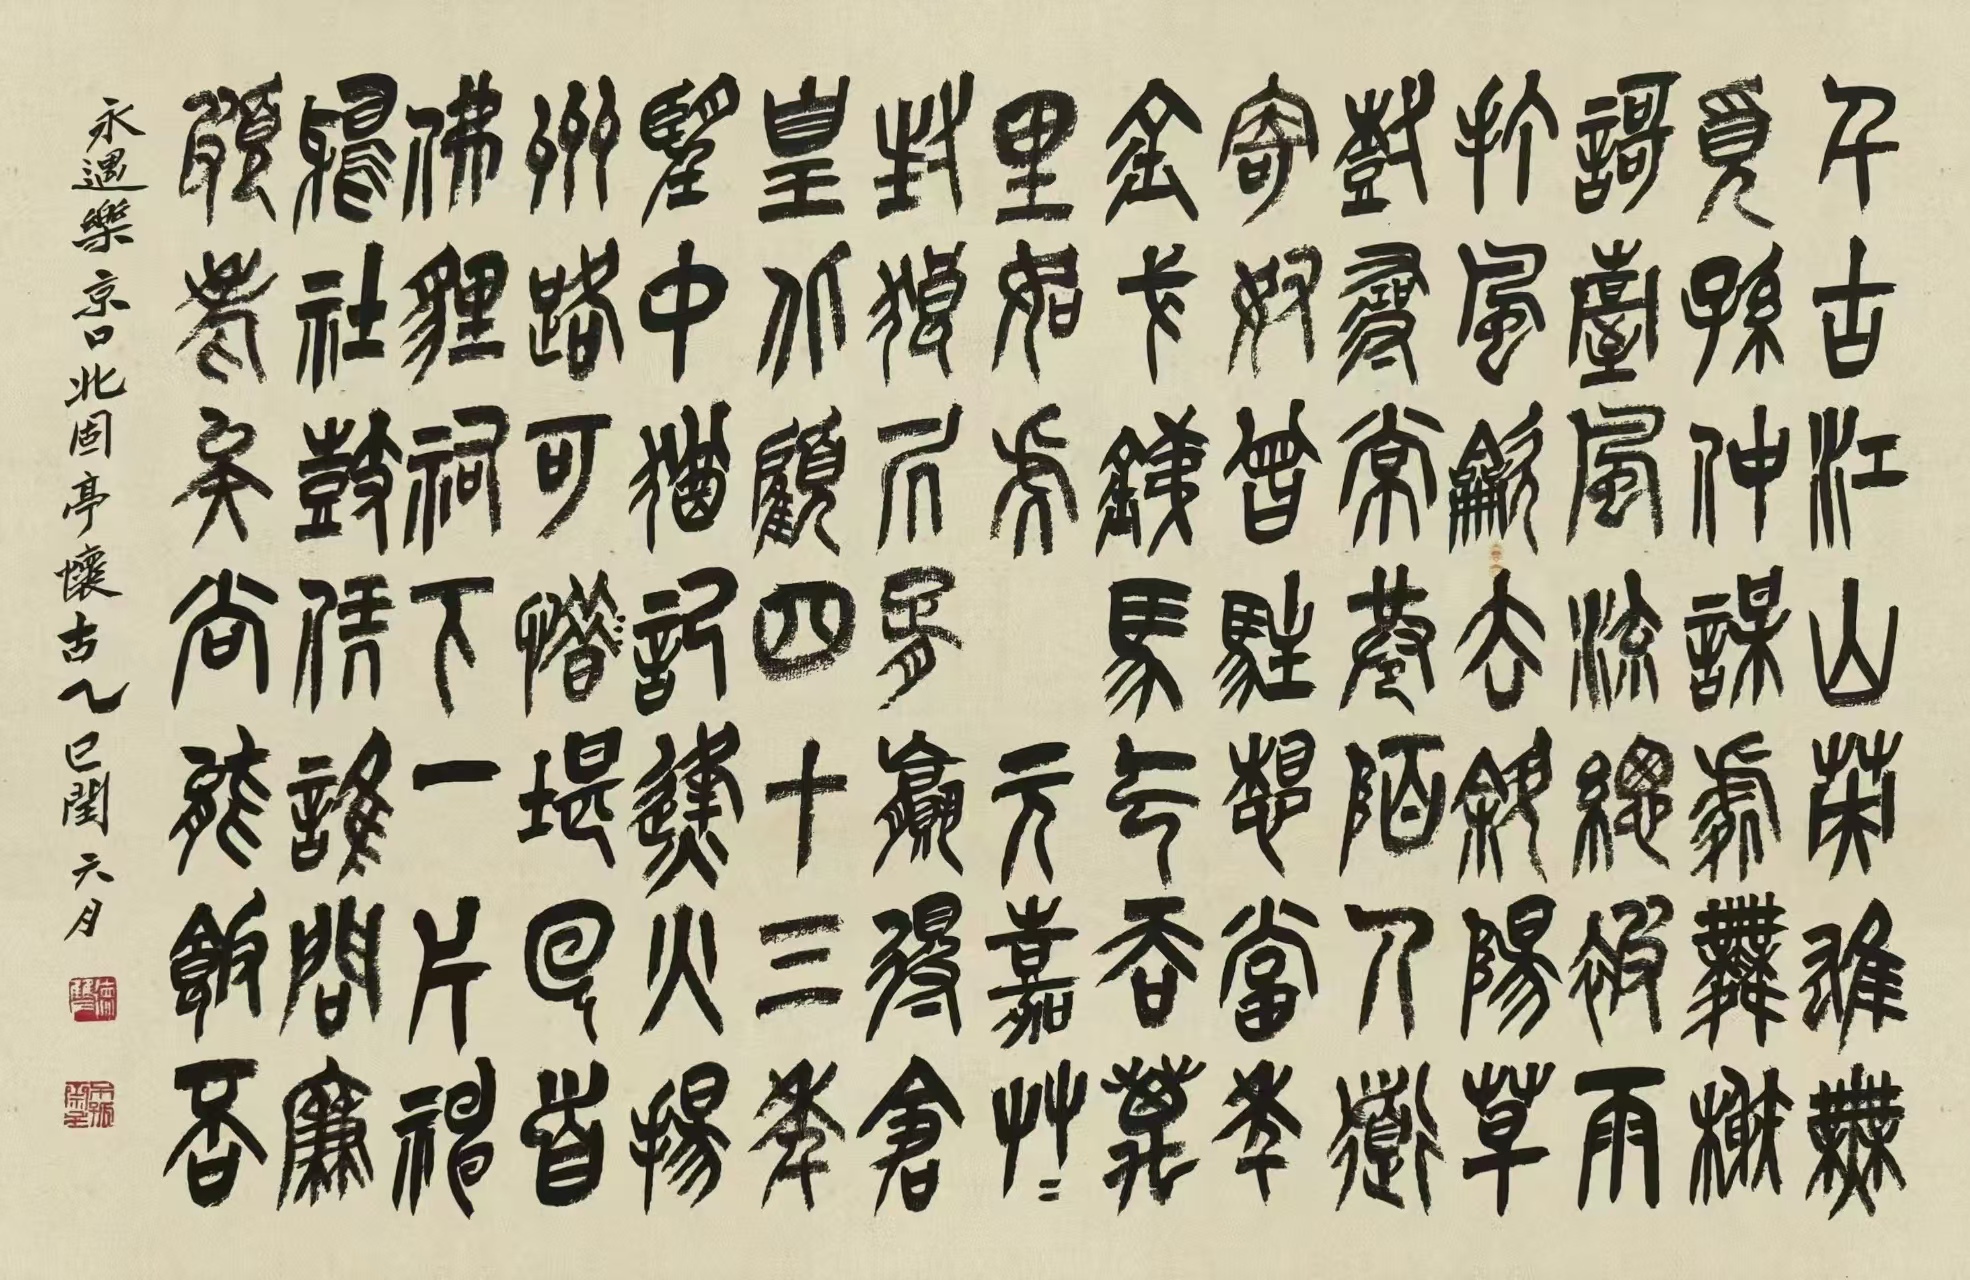 千古江山英雄無
覓孫仲謀處舞榭
謌臺風流總被雨
打風龡去斜陽草
樹尋常巷陌人道
寄奴曾駐想當年
金戈鐵馬气吞萬
里如虎 元嘉艸〻
封狼凥胥贏得倉
皇北顧四十三年
望中猶記烽火揚
州路可憯堪回首
佛貍祠下一片神
鴉社鼓凭誰問廉
頗老矣尚能飯否
永遇樂京口北固亭懷古乙巳閏六月